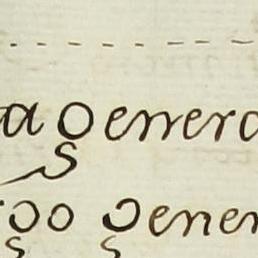 a genera
go gener